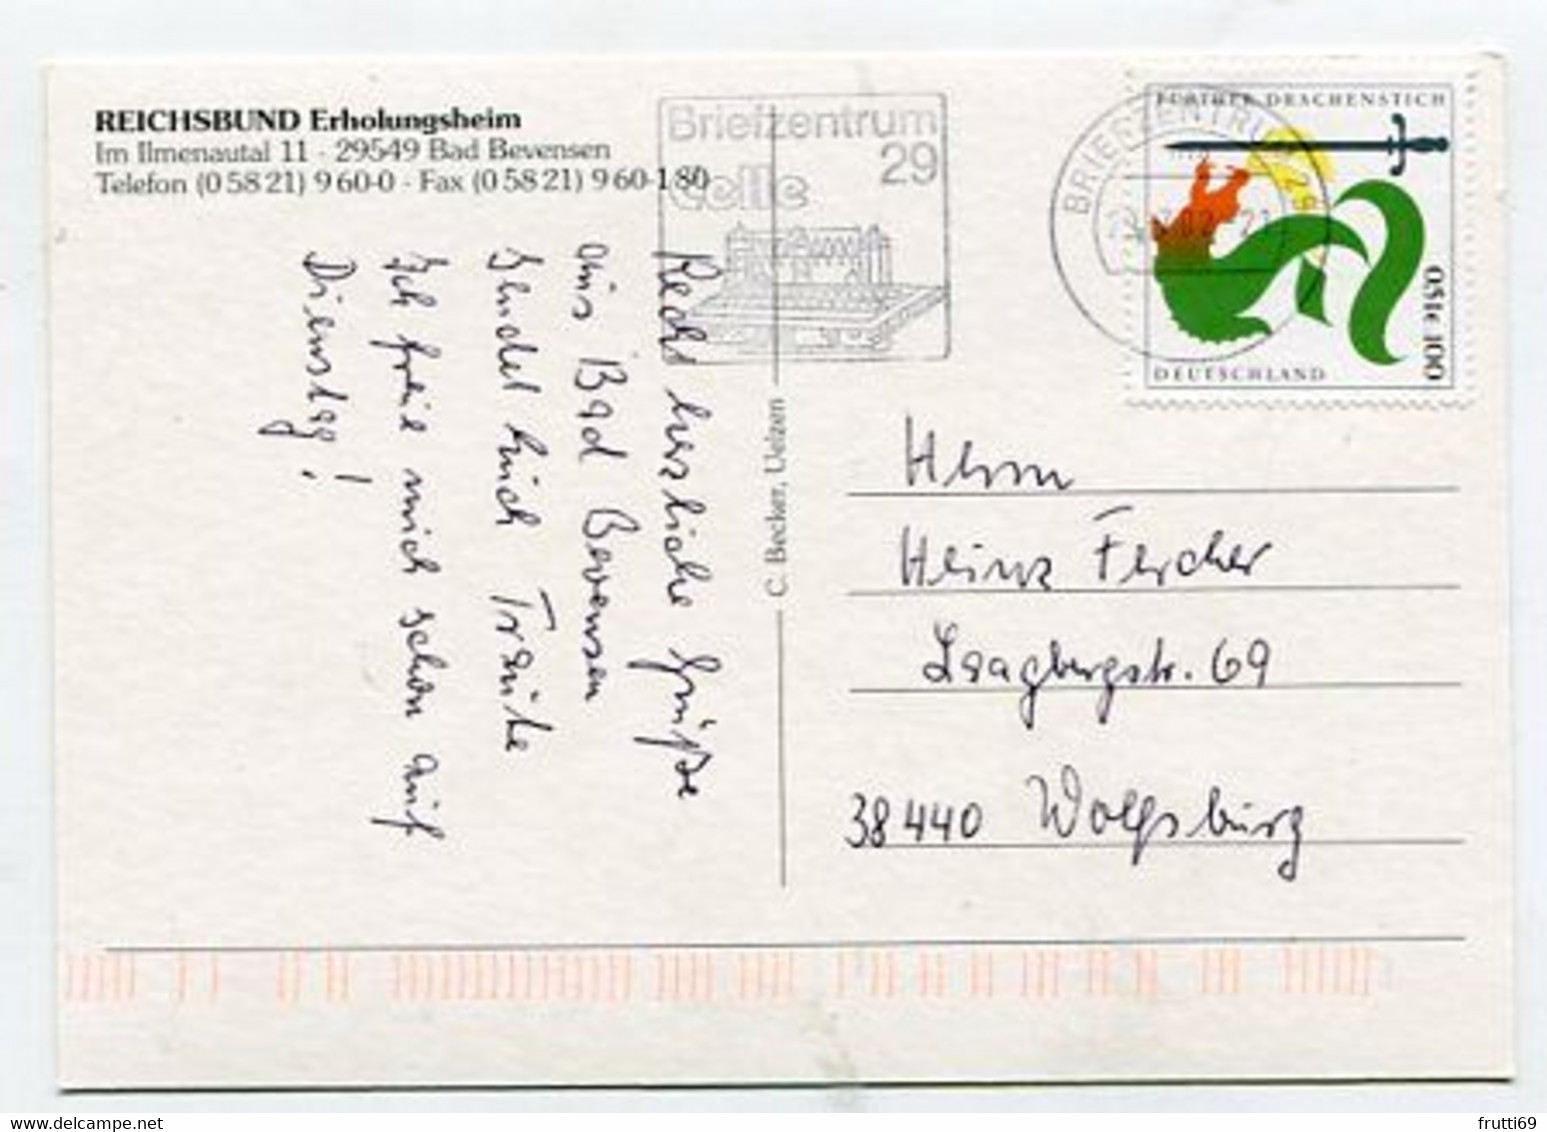 REICHSBUND Erholungsheim
Im Ilmenautal 11 - 29549 Bad Bevensen
Telefon (0 58 21) 9 60-0 - Fax (0 58 21) 9 60-1 80
Briefzentrum
29
Celle
BRIEFZENTRUM 29
FURTHER DRACHENSTICH
0,51€ 100
DEUTSCHLAND
Recht herzliche Grüße
aus Bad Bevensen
sendet Euch Traute
Ich freue mich schon auf
Dienstag!
C. Becker, Uelzen
Herrn
Heinz Fercher
Laagbergstr. 69
38440 Wolfsburg
frutti69